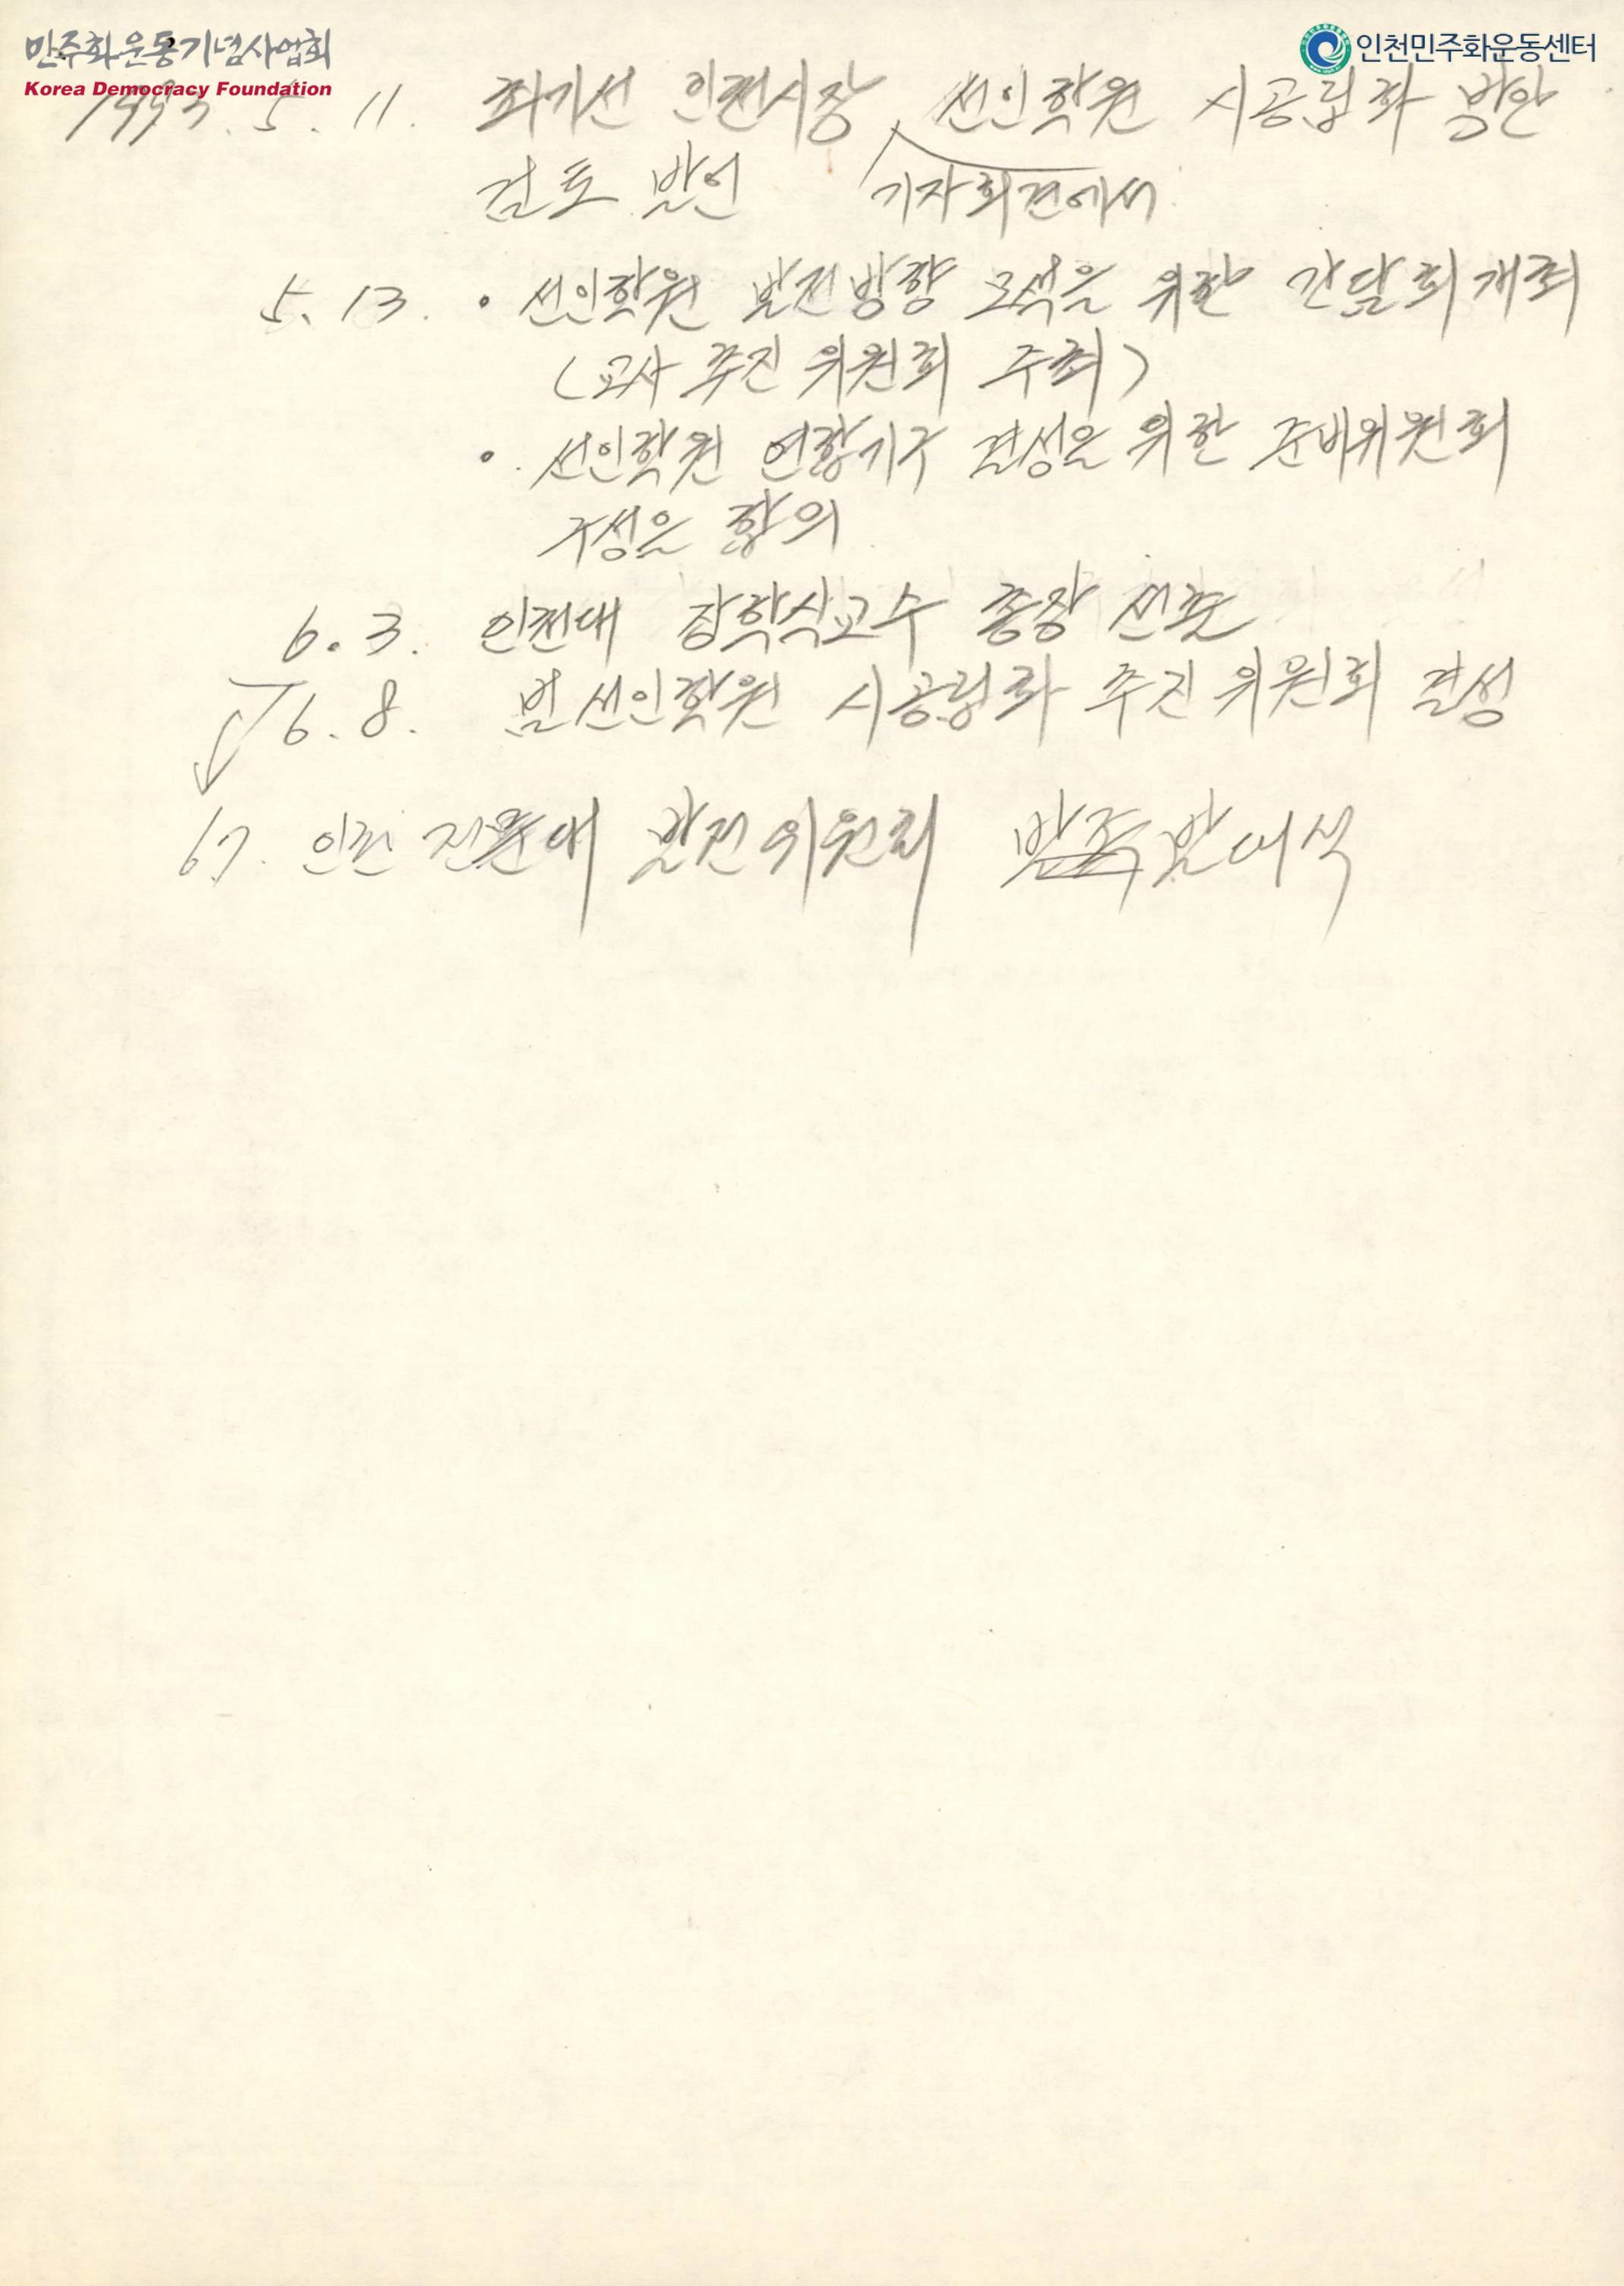 민주화운동기념사업회
Korea Democracy Foundation
인천민주화운동센터
1993. 5. 11. 최기선 인천시장 선인학원 시공립화 방안
검토 발언 기자회견에서
5. 13. • 선인학원 발전방향 모색을 위한 간담회 개최
(교사 추진 위원회 주최)
• 선인학원 연합기구 결성을 위한 준비위원회
구성을 합의
6. 3. 인천대 장학식교수 총장 선출
6. 8. 범선인학원 시공립화 추진 위원회 결성
67. 인천 전문대 발전위원회 발족 발대식